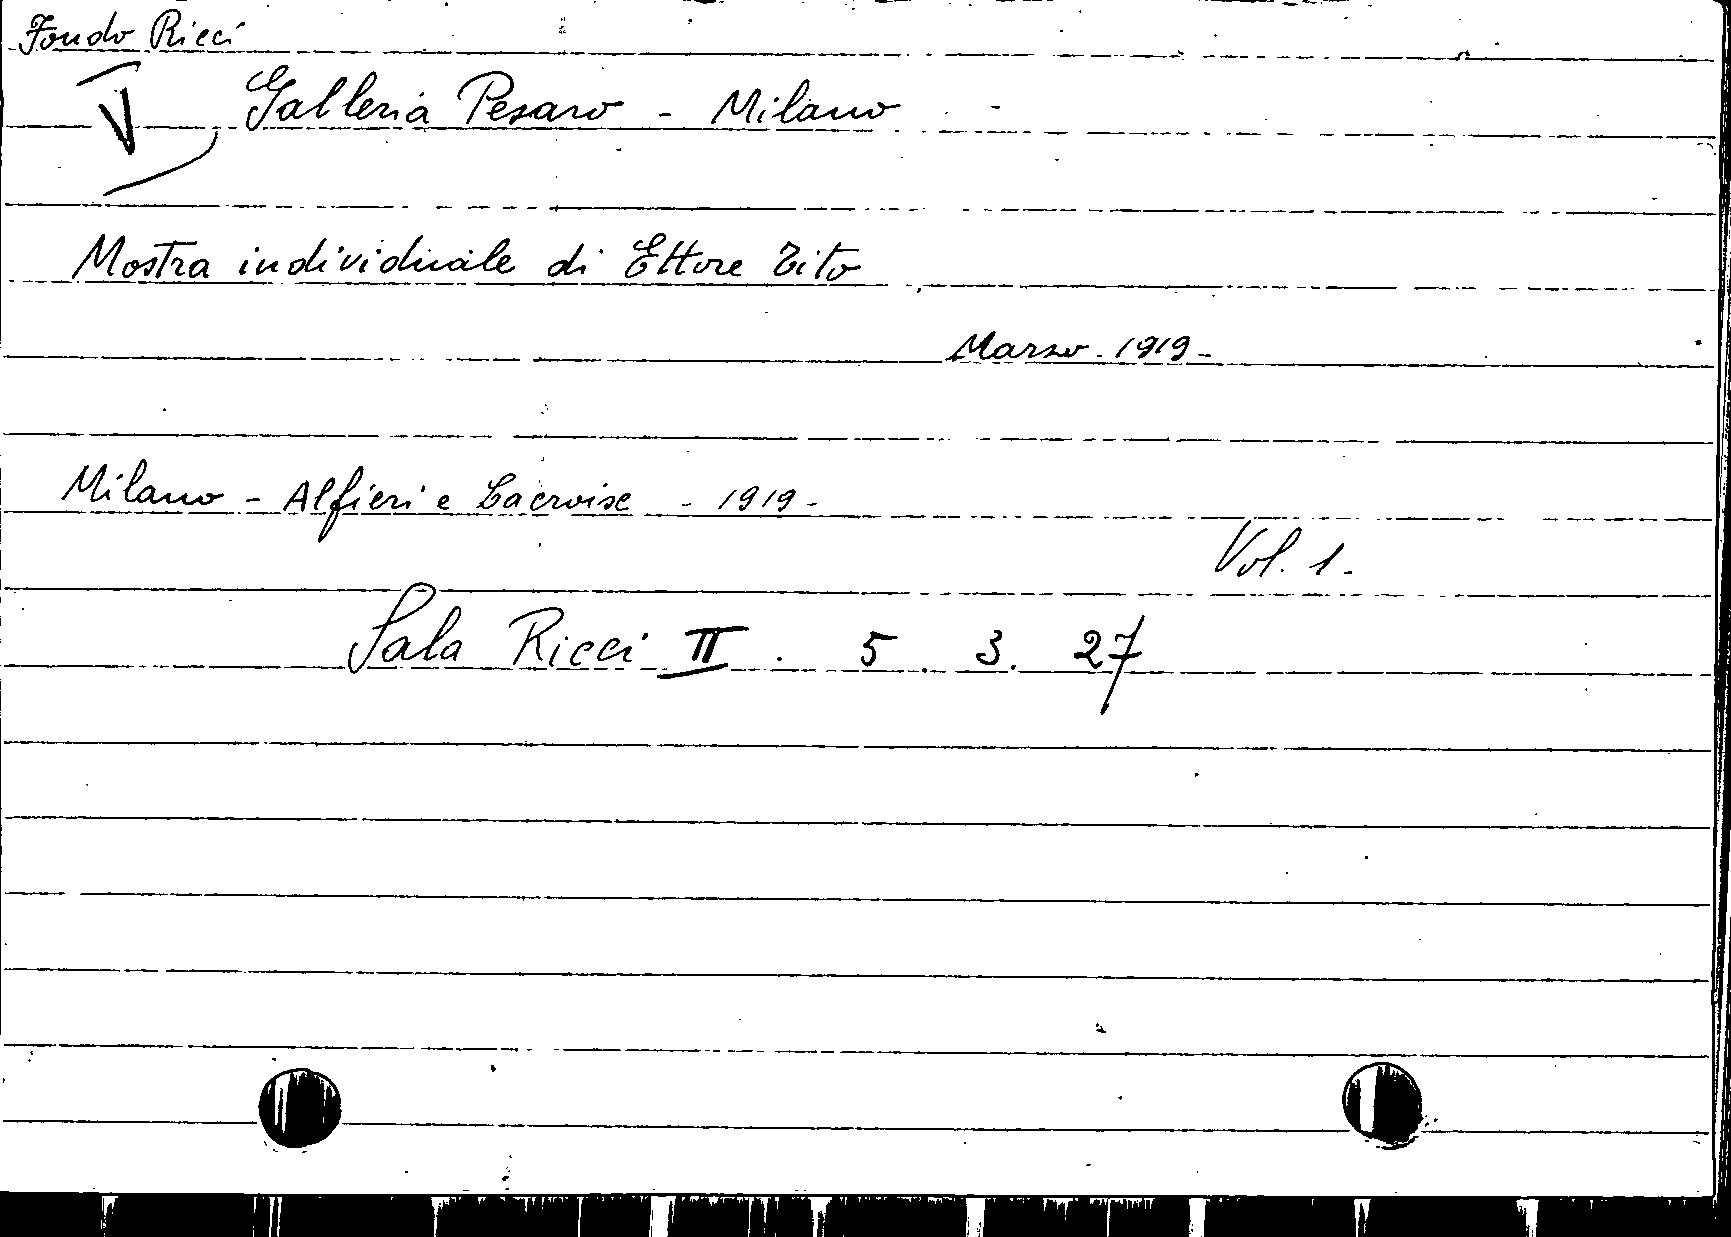 Fondo Ricci
V Galleria Pesaro - Milano
Mostra individuale di Ettore Tito
Marzo 1919-
Milano - Alfieri e Lacroixe - 1919-
Vol. 1.
Sala Ricci II . 5 . 3 . 27